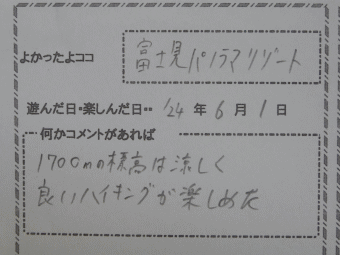 よかったよココ 富士見パノラマリゾート
遊んだ日・楽しんだ日・・ '24 年 6 月 1 日
何かコメントがあれば
1700mの標高は涼しく
良いハイキングが楽しめた